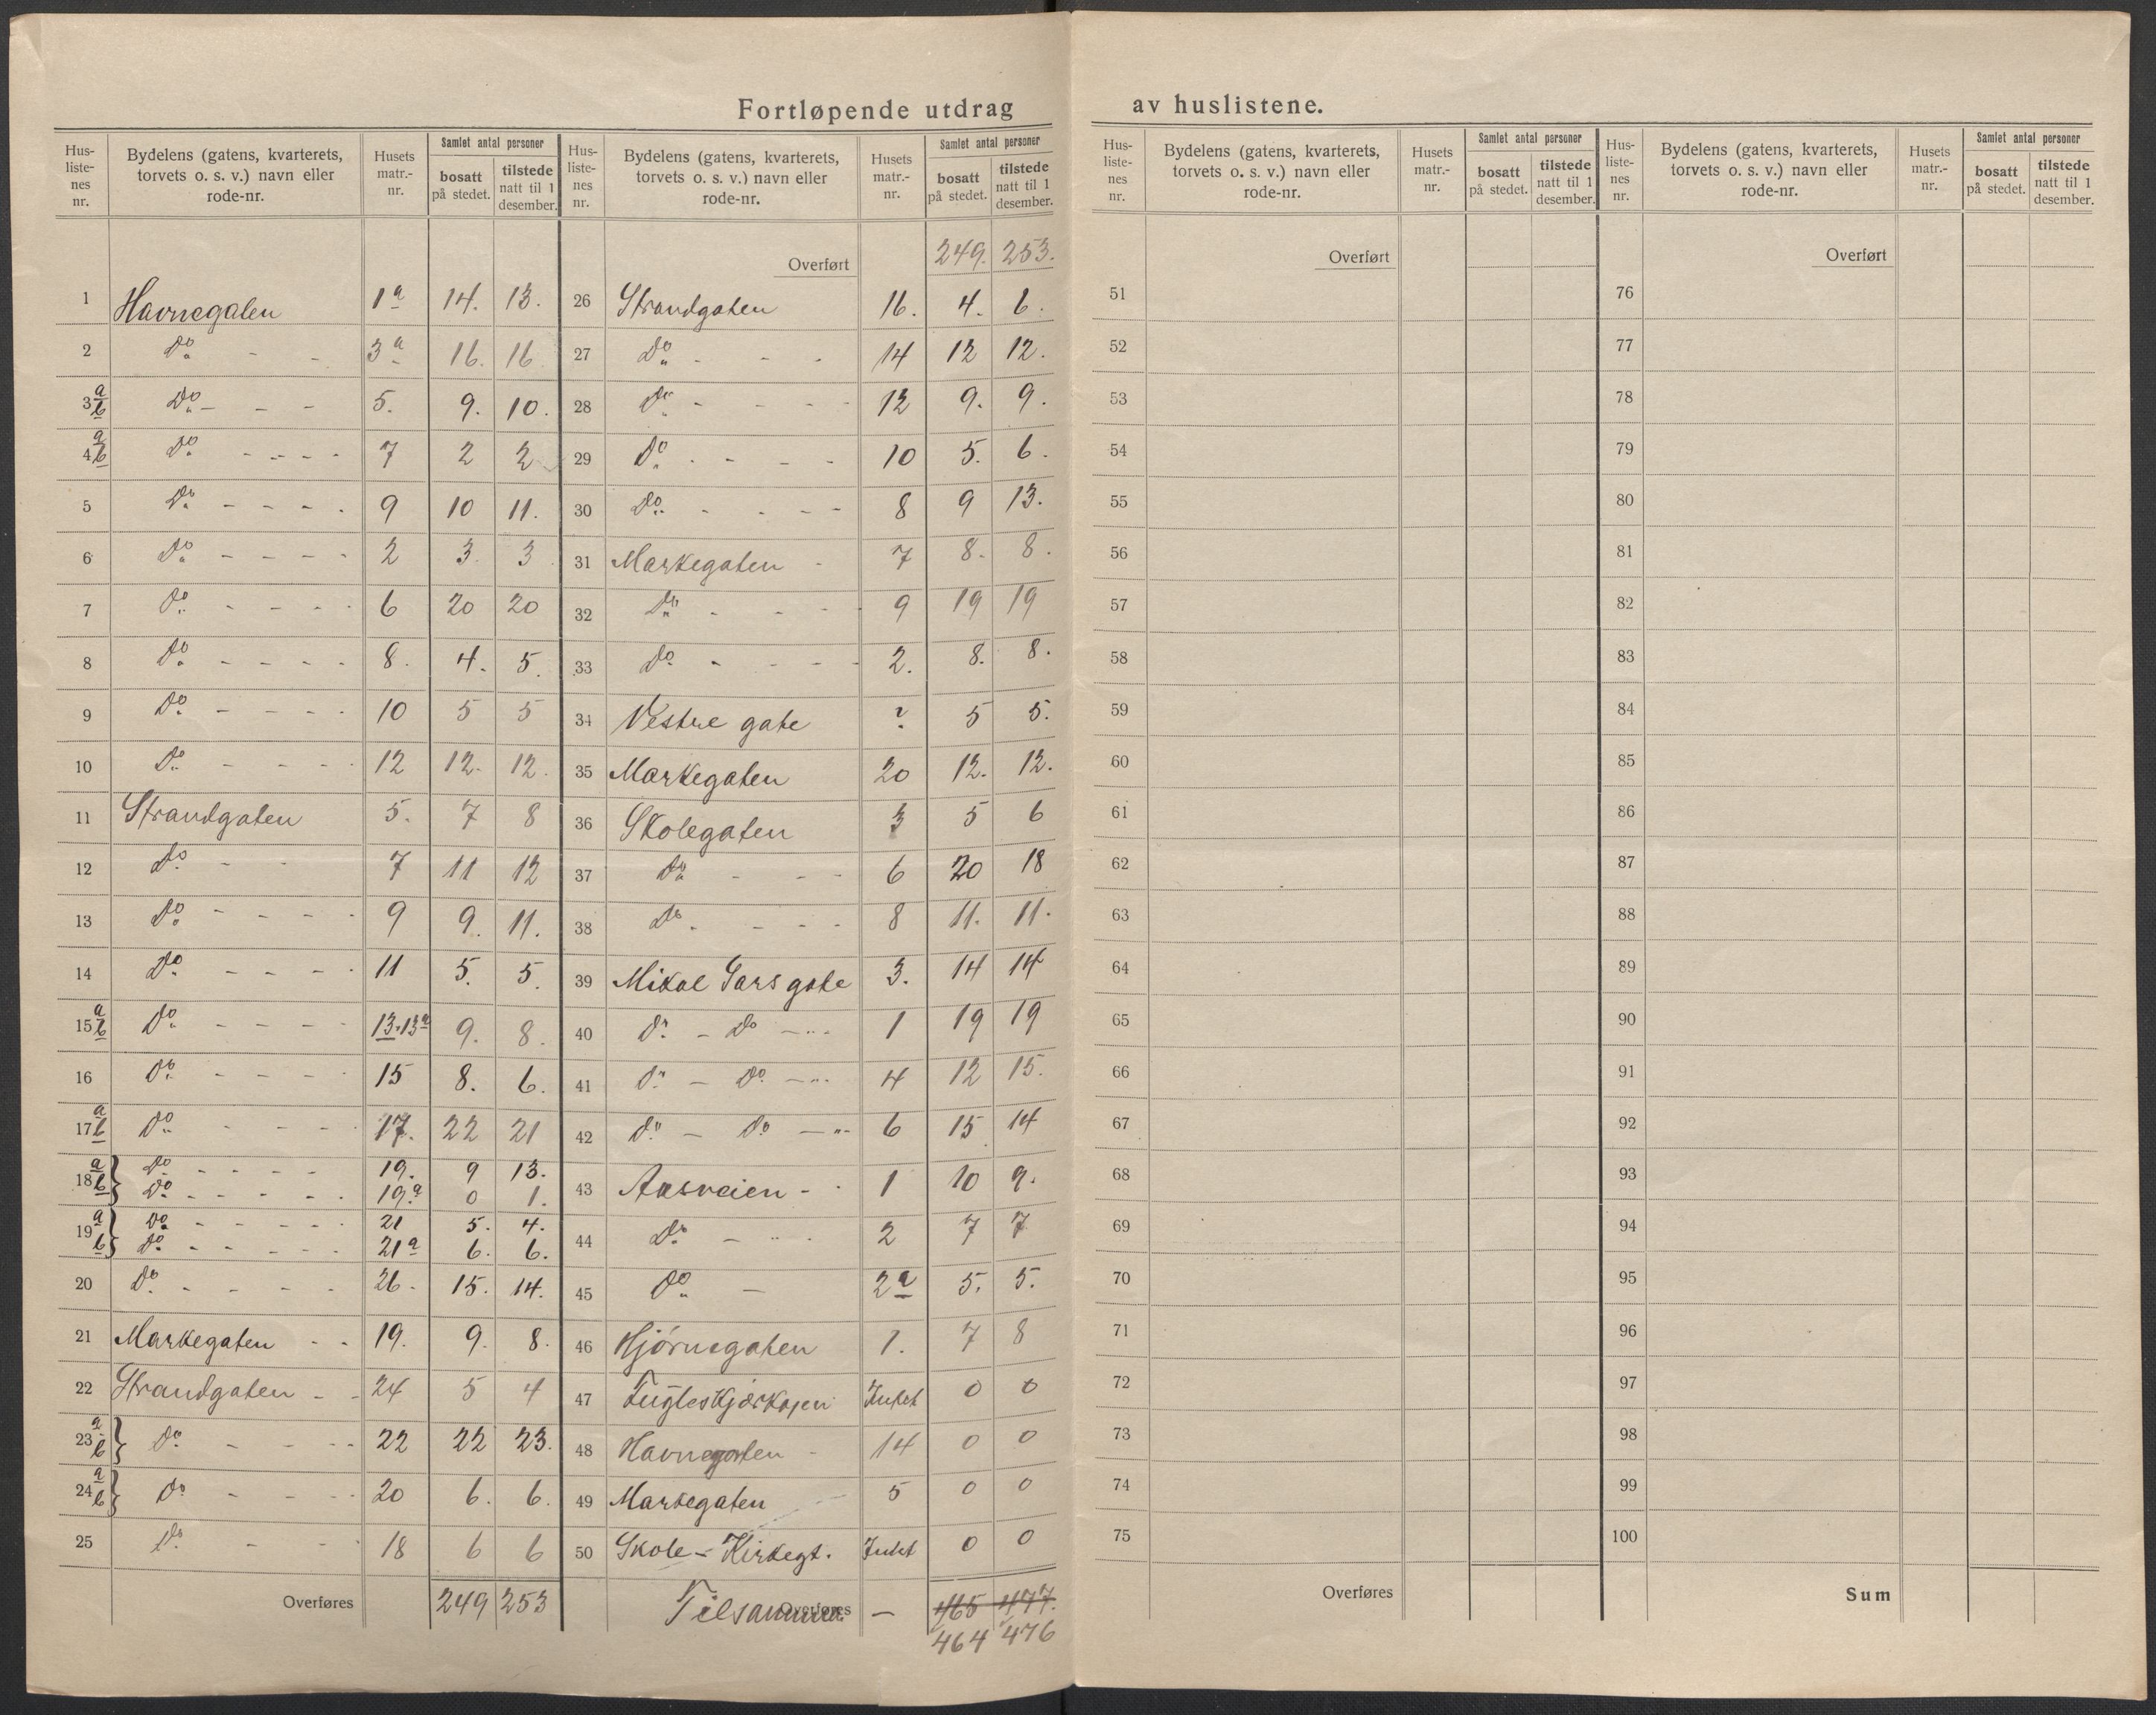 Fortløpende utdrag av huslistene.
Hus-liste-nes nr. | Bydelens (gatens, kvarterets, torvets o. s. v.) navn eller rode-nr. | Husets matr.-nr. | Samlet antal personer bosatt på stedet. | tilstede natt til 1 desember.
1 Havnegaten 1a 14. 13.
2 Do. - - 3a 16. 16
3 a b Do. - - - 5. 9. 10.
4 a b Do. - - - - 7 2 2
5 Do. - - - - 9 10 11.
6 Do. - - - - 2 3. 3
7 Do. - - - - 6 20 20
8 Do. - - - - 8. 4. 5.
9 Do. - - - - 10 5 5
10 Do. - - - - 12 12. 12.
11 Strandgaten 5. 7 8
12 Do. - - 7 11 12
13 Do. - - - - 9 9. 11.
14 Do. - - - - 11 5. 5.
15 a b Do. - - - - 13.13a 9. 8.
16 Do. - - - - 15 8. 6.
17 a b Do. - - - - 17. 22 21
18 a } Do. - - - - 19. 9 13.
b } Do. - - - - 19a 0 1.
19 a } Do. - - - - 21 5. 4.
b } Do. - - - - 21a 6. 6.
20 Do. - - - - 26. 15. 14.
21 Markegaten - - 19. 9. 8.
22 Strandgaten - - 24 5 4
23 a b } Do. - - - - 22 22 23.
24 a b } Do. - - - - 20 6. 6.
25 Do. - - 18 6 6
Overføres 249 253
Hus-liste-nes nr. | Bydelens (gatens, kvarterets, torvets o. s. v.) navn eller rode-nr. | Husets matr.-nr. | Samlet antal personer bosatt på stedet. | tilstede natt til 1 desember.
Overført 249. 253.
26 Strandgaten 16. 4. 6.
27 Do. - - - 14 12 12.
28 Do. - - - - 12 9. 9.
29 Do. - - - - 10 5. 6.
30 Do. - - - - 8 9 13.
31 Markegaten - 7 8. 8.
32 Do. - - - - 9 19 19
33 Do. - - - - 2. 8. 8.
34 Vestre gate ? 5 5.
35 Markegaten 20 12. 12.
36 Skolegaten 3 5 6
37 Do. - - - 6 20 18
38 Do. - - - 8 11. 11.
39 Mikal Sars gate 3. 14 14
40 Do. - Do - 1 19 19
41 Do. - Do. - 4 12 15.
42 Do. - Do - 6 15 14
43 Aasveien - 1 10 9.
44 Do. - 2 7 7
45 Do. - 2a 5. 5.
46 Hjørnegaten 1. 7 8
47 Fugleskjærkajen Intet 0 0
48 Havnegaten - 14 0 0
49 Markegaten 5 0 0
50 Skole - Kirkegt. Intet 0 0
Overføres Tilsammen - 465 477.
464 476
Hus-liste-nes nr. | Bydelens (gatens, kvarterets, torvets o. s. v.) navn eller rode-nr. | Husets matr.-nr. | Samlet antal personer bosatt på stedet. | tilstede natt til 1 desember.
Overført
51
52
53
54
55
56
57
58
59
60
61
62
63
64
65
66
67
68
69
70
71
72
73
74
75
Overføres
Hus-liste-nes nr. | Bydelens (gatens, kvarterets, torvets o. s. v.) navn eller rode-nr. | Husets matr.-nr. | Samlet antal personer bosatt på stedet. | tilstede natt til 1 desember.
Overført
76
77
78
79
80
81
82
83
84
85
86
87
88
89
90
91
92
93
94
95
96
97
98
99
100
Sum